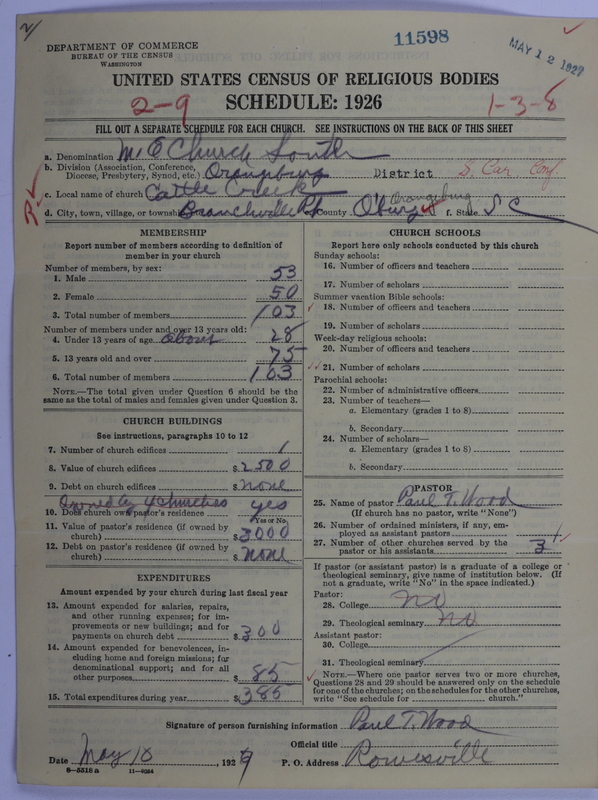 2/
DEPARTMENT OF COMMERCE
BUREAU OF THE CENSUS
WASHINGTON
11598
MAY 12 1927
UNITED STATES CENSUS OF RELIGIOUS BODIES
2-9 SCHEDULE: 1926 1-3-8
FILL OUT A SEPARATE SCHEDULE FOR EACH CHURCH. SEE INSTRUCTIONS ON THE BACK OF THIS SHEET
a. Denomination M. E. Church South
b. Division (Association, Conference, Diocese, Presbytery, Synod, etc.) Orangeburg District S. Car. Conf.
c. Local name of church Cattle Creek
Orangeburg
d. City, town, village, or township Branchville County O'burg f. State S C
MEMBERSHIP
Report number of members according to definition of
member in your church
Number of members, by sex:
1. Male 53
2. Female 50
3. Total number of members 103
Number of members under and over 13 years old:
4. Under 13 years of age about 28
5. 13 years old and over 75
6. Total number of members 103
NOTE.—The total given under Question 6 should be the
same as the total of males and females given under Question 3.
CHURCH BUILDINGS
See instructions, paragraphs 10 to 12
7. Number of church edifices 1
8. Value of church edifices $2500
9. Debt on church edifices $none
Owned by 4 churches
10. Does church own pastor's residence yes
Yes or No
11. Value of pastor's residence (if owned by
church) $3000
12. Debt on pastor's residence (if owned by
church) $none
EXPENDITURES
Amount expended by your church during last fiscal year
13. Amount expended for salaries, repairs,
and other running expenses; for im-
provements or new buildings; and for
payments on church debt $300
14. Amount expended for benevolences, in-
cluding home and foreign missions; for
denominational support; and for all
other purposes $85
15. Total expenditures during year $385
CHURCH SCHOOLS
Report here only schools conducted by this church
Sunday schools:
16. Number of officers and teachers
17. Number of scholars
Summer vacation Bible schools:
18. Number of officers and teachers
19. Number of scholars
Week-day religious schools:
20. Number of officers and teachers
21. Number of scholars
Parochial schools:
22. Number of administrative officers
23. Number of teachers—
a. Elementary (grades 1 to 8)
b. Secondary
24. Number of scholars—
a. Elementary (grades 1 to 8)
b. Secondary
PASTOR
25. Name of pastor Paul T. Wood
(If church has no pastor, write "None")
26. Number of ordained ministers, if any, em-
ployed as assistant pastors
27. Number of other churches served by the
pastor or his assistants 3
If pastor (or assistant pastor) is a graduate of a college or
theological seminary, give name of institution below. (If
not a graduate, write "No" in the space indicated.)
Pastor:
28. College no
29. Theological seminary no
Assistant pastor:
30. College
31. Theological seminary
NOTE.—Where one pastor serves two or more churches,
Questions 28 and 29 should be answered only on the schedule
for one of the churches; on the schedules for the other churches,
write "See schedule for church."
Signature of person furnishing information Paul T. Wood
Official title
Date May 10, 1927 P. O. Address Rowesville
8-5518a 11-9054